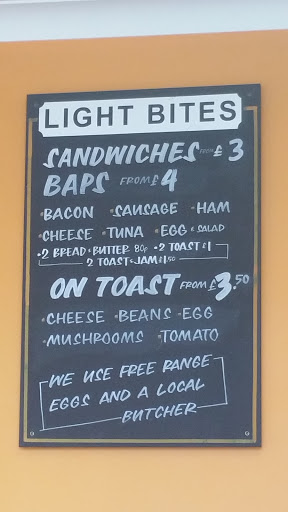 LIGHT BITES
SANDWICHES FROM £3
BAPS FROM £4
•BACON •SAUSAGE •HAM
•CHEESE •TUNA •EGG & SALAD
•2 BREAD & BUTTER 80p •2 TOAST £1
2 TOAST & JAM £1.50
ON TOAST FROM £3.50
•CHEESE •BEANS •EGG
•MUSHROOMS •TOMATO
WE USE FREE RANGE
EGGS AND A LOCAL
BUTCHER